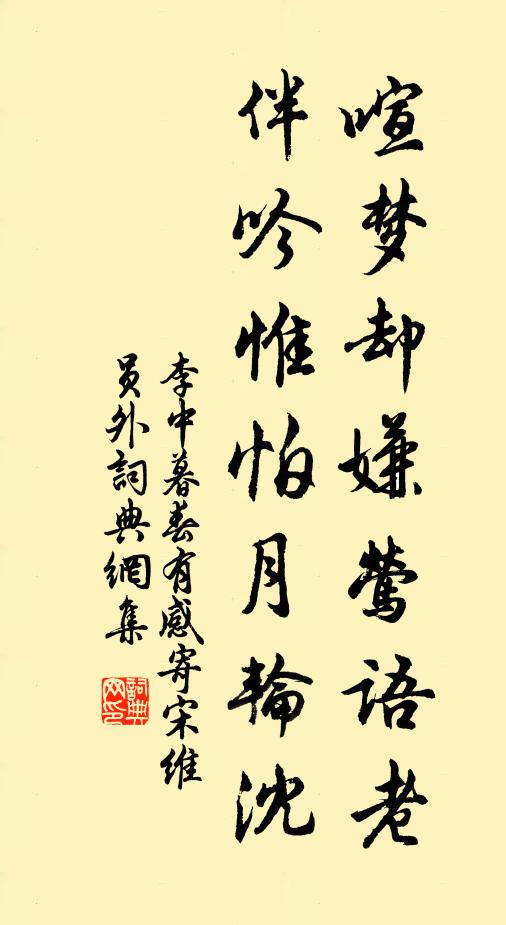 喧梦却嫌莺语老
伴吟惟怕月轮沈
李中暮春有感寄宋维
员外詞典網集
詞典
网印